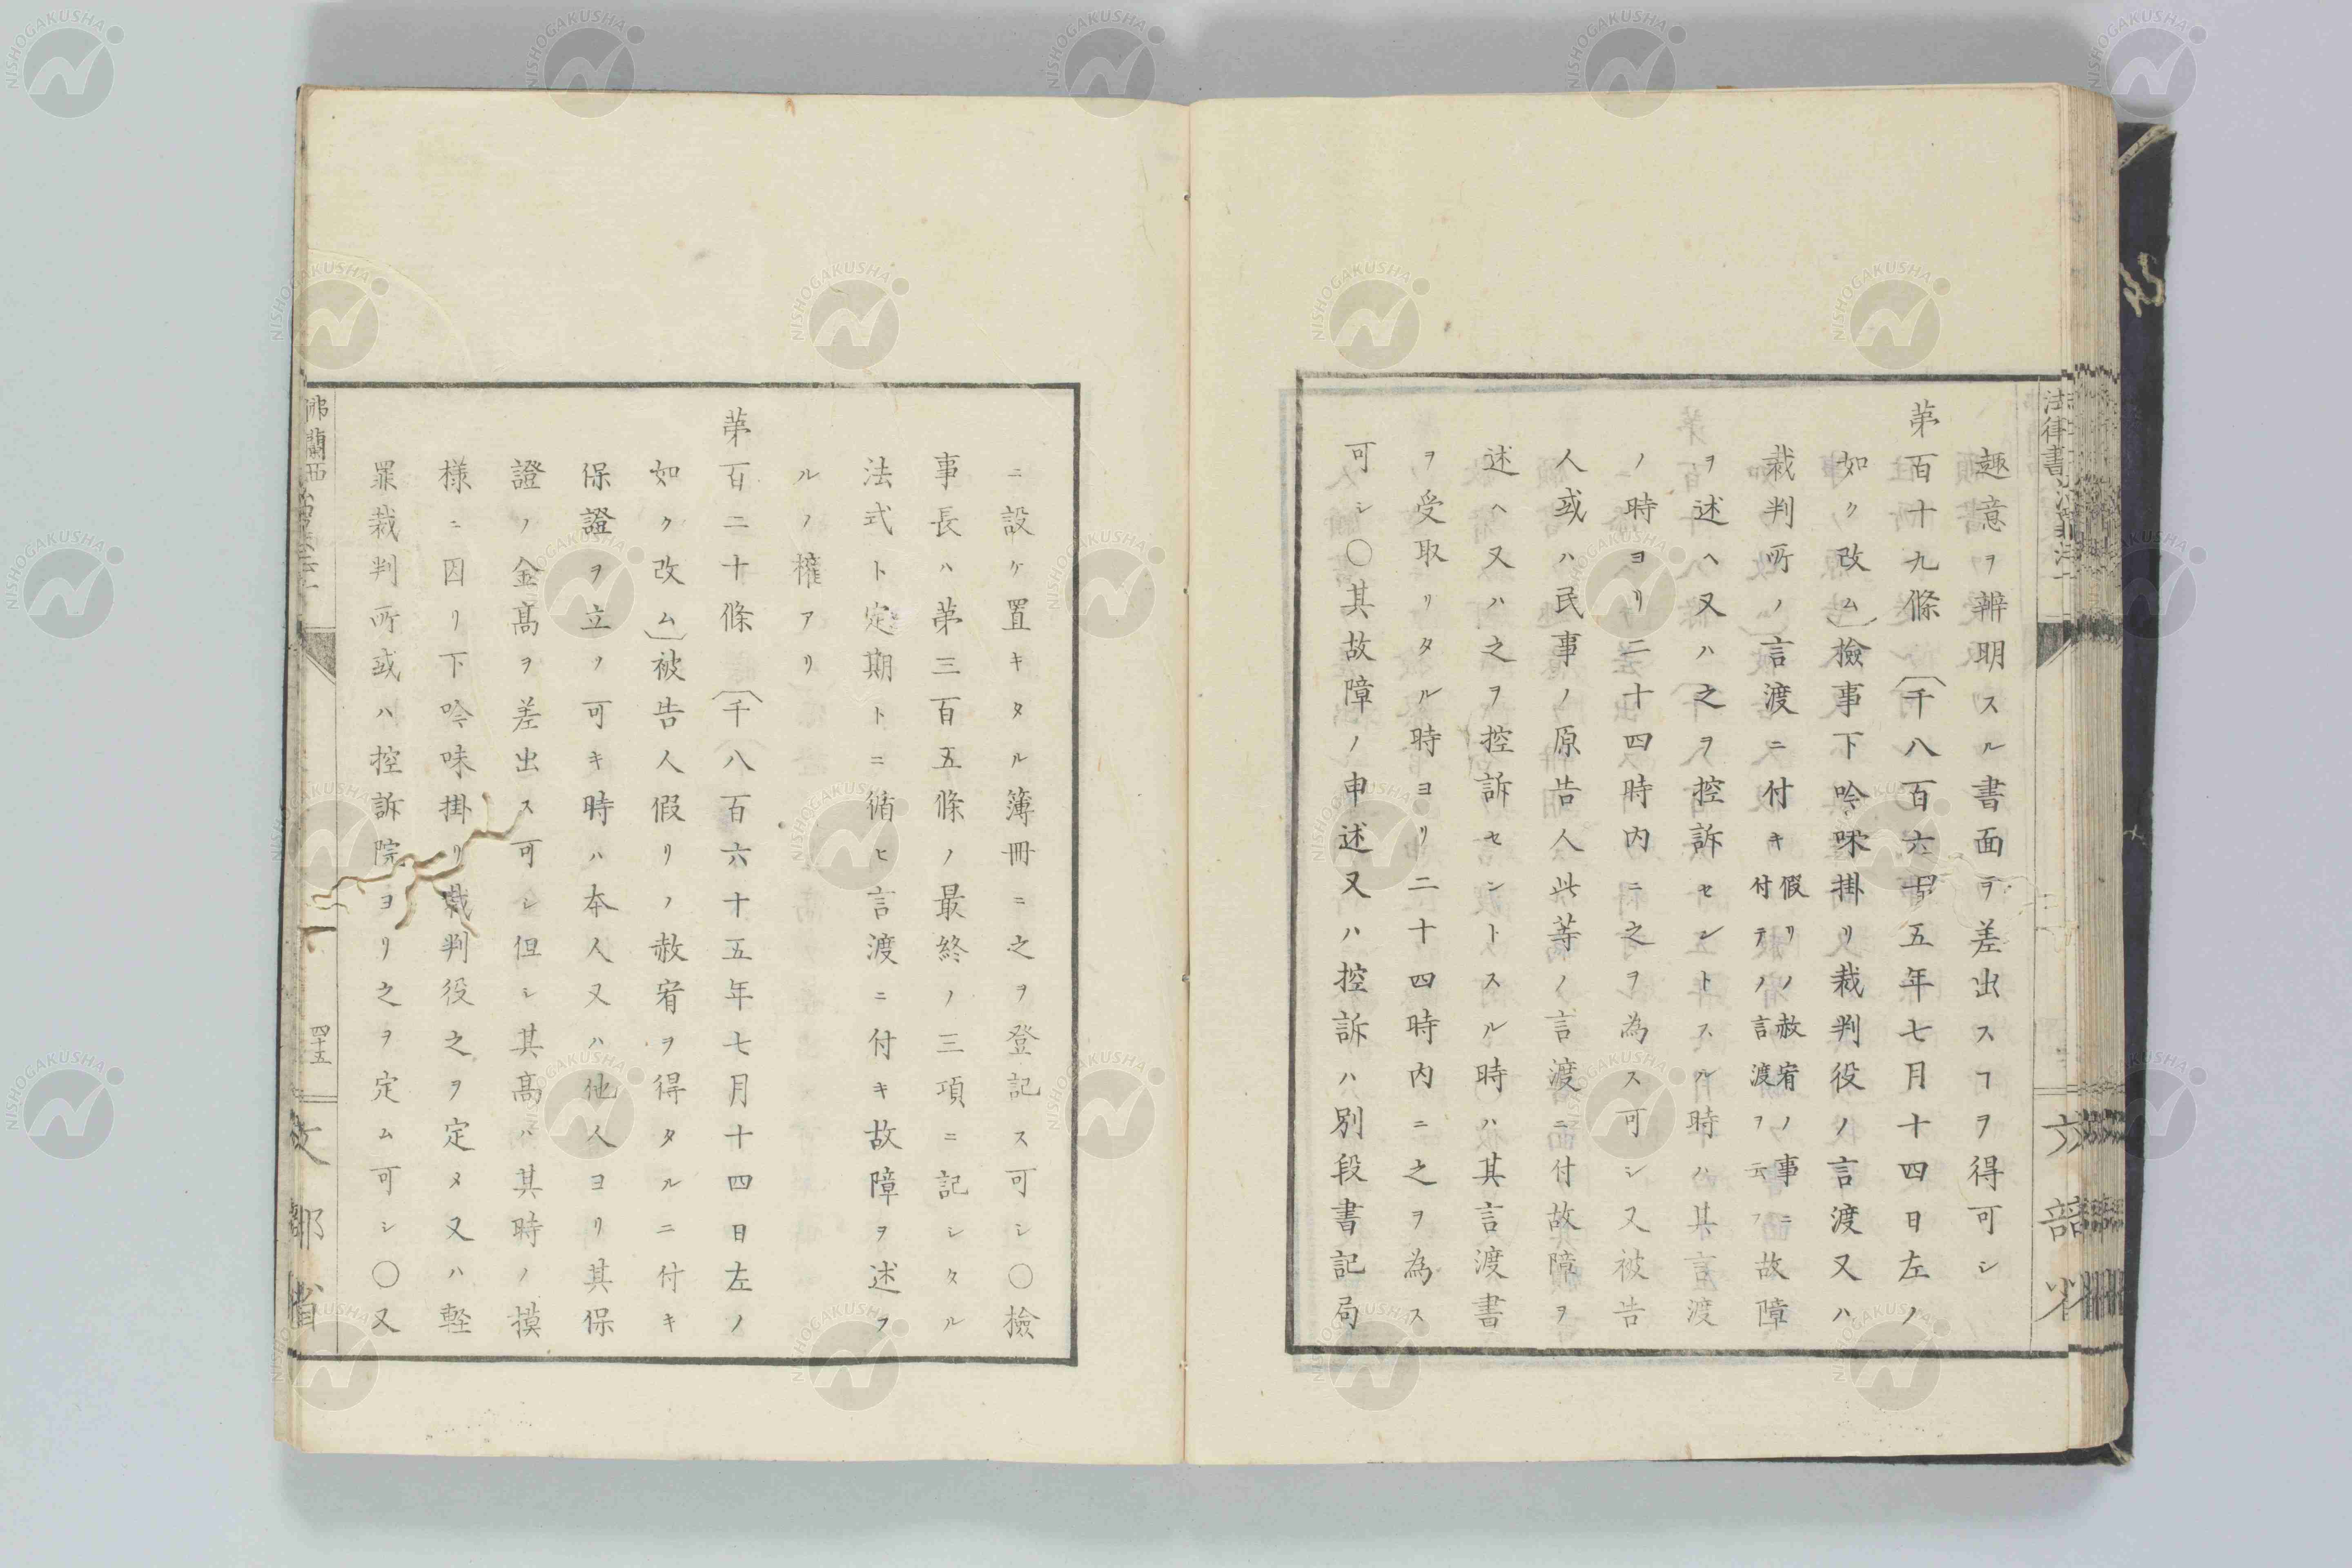 趣意ヲ辨明スル書面ヲ差出スヿヲ得可シ
第百十九條〔千八百六十五年七月十四日左ノ
如ク改ム〕檢事下吟味掛リ裁判役ノ言渡又ハ
裁判所ノ言渡ニ付キ假リノ赦宥ノ事ニ付テノ言渡ヲ云フ故障
ヲ述ヘ又ハ之ヲ控訴セントスル時ハ其言渡
ノ時ヨリ二十四時内ニ之ヲ為ス可シ又被告
人或ハ民事ノ原告人此等ノ言渡ニ付故障ヲ
述ヘ又ハ之ヲ控訴セントスル時ハ其言渡書
ヲ受取リタル時ヨリ二十四時内ニ之ヲ為ス
可シ〇其故障ノ申述又ハ控訴ハ別段書記局
ニ設ケ置キタル簿冊ニ之ヲ登記ス可シ〇檢
事長ハ第三百五條ノ最終ノ三項ニ記シタル
法式ト定期トニ循ヒ言渡ニ付キ故障ヲ述フ
ルノ權アリ
第百二十條〔千八百六十五年七月十四日左ノ
如ク改ム〕被告人假リノ赦宥ヲ得タルニ付キ
保證ヲ立ツ可キ時ハ本人又ハ他人ヨリ其保
證ノ金高ヲ差出ス可シ但シ其高ハ其時ノ摸
様ニ因リ下吟味掛リ裁判役之ヲ定メ又ハ軽
罪裁判所或ハ控訴院ヨリ之ヲ定ム可シ〇又
佛蘭西
四十五
文部省
NISHOGAKUSHA